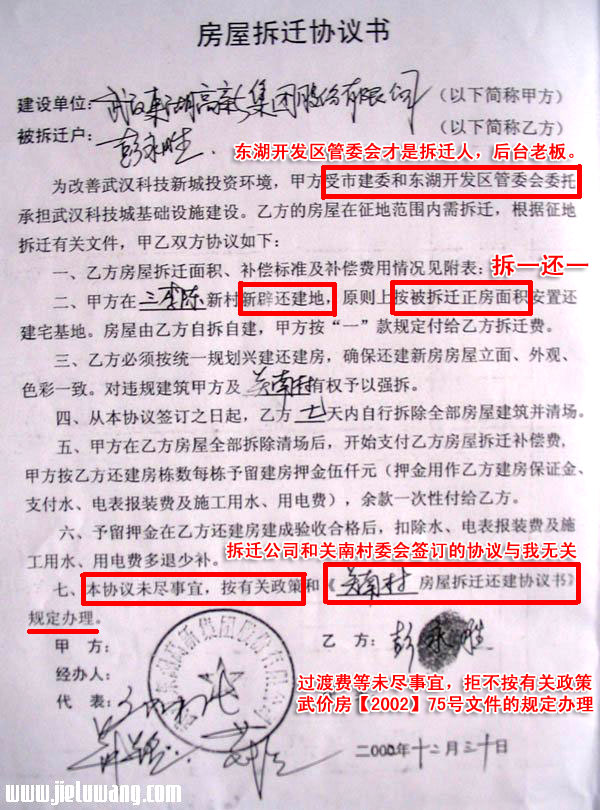 房屋拆迁协议书
建设单位:武汉东湖高新集团股份有限公司(以下简称甲方)
被拆迁户:彭永胜(以下简称乙方)
东湖开发区管委会才是拆迁人,后台老板。
为改善武汉科技新城投资环境,甲方受市建委和东湖开发区管委会委托
承担武汉科技城基础设施建设。乙方的房屋在征地范围内需拆迁,根据征地
拆迁有关文件,甲乙双方协议如下:
一、乙方房屋拆迁面积、补偿标准及补偿费用情况见附表:
拆一还一
二、甲方在三李陈新村新辟还建地,原则上按被拆迁正房面积安置还
建宅基地。房屋由乙方自拆自建,甲方按“一”款规定付给乙方拆迁费。
三、乙方必须按统一规划兴建还建房,确保还建新房房屋立面、外观、
色彩一致。对违规建筑甲方及关南村有权予以强拆。
四、从本协议签订之日起,乙方七天内自行拆除全部房屋建筑并清场。
五、甲方在乙方房屋全部拆除清场后,开始支付乙方房屋拆迁补偿费,
甲方按乙方还建房栋数每栋予留建房押金伍仟元(押金用作乙方建房保证金、
支付水、电表报装费及施工用水、用电费),余款一次性付给乙方。
六、予留押金在乙方还建房建成验收合格后,扣除水、电表报装费及施
工用水、用电费多退少补。
拆迁公司和关南村委会签订的协议与我无关
七、本协议未尽事宜,按有关政策和《关南村房屋拆迁还建协议书》
规定办理。
甲方:
乙方:彭永胜
经办人:
过渡费等未尽事宜,拒不按有关政策
武价房【2002】75号文件的规定办理
代表:
二00二年十二月三十日
www.jieluwang.com